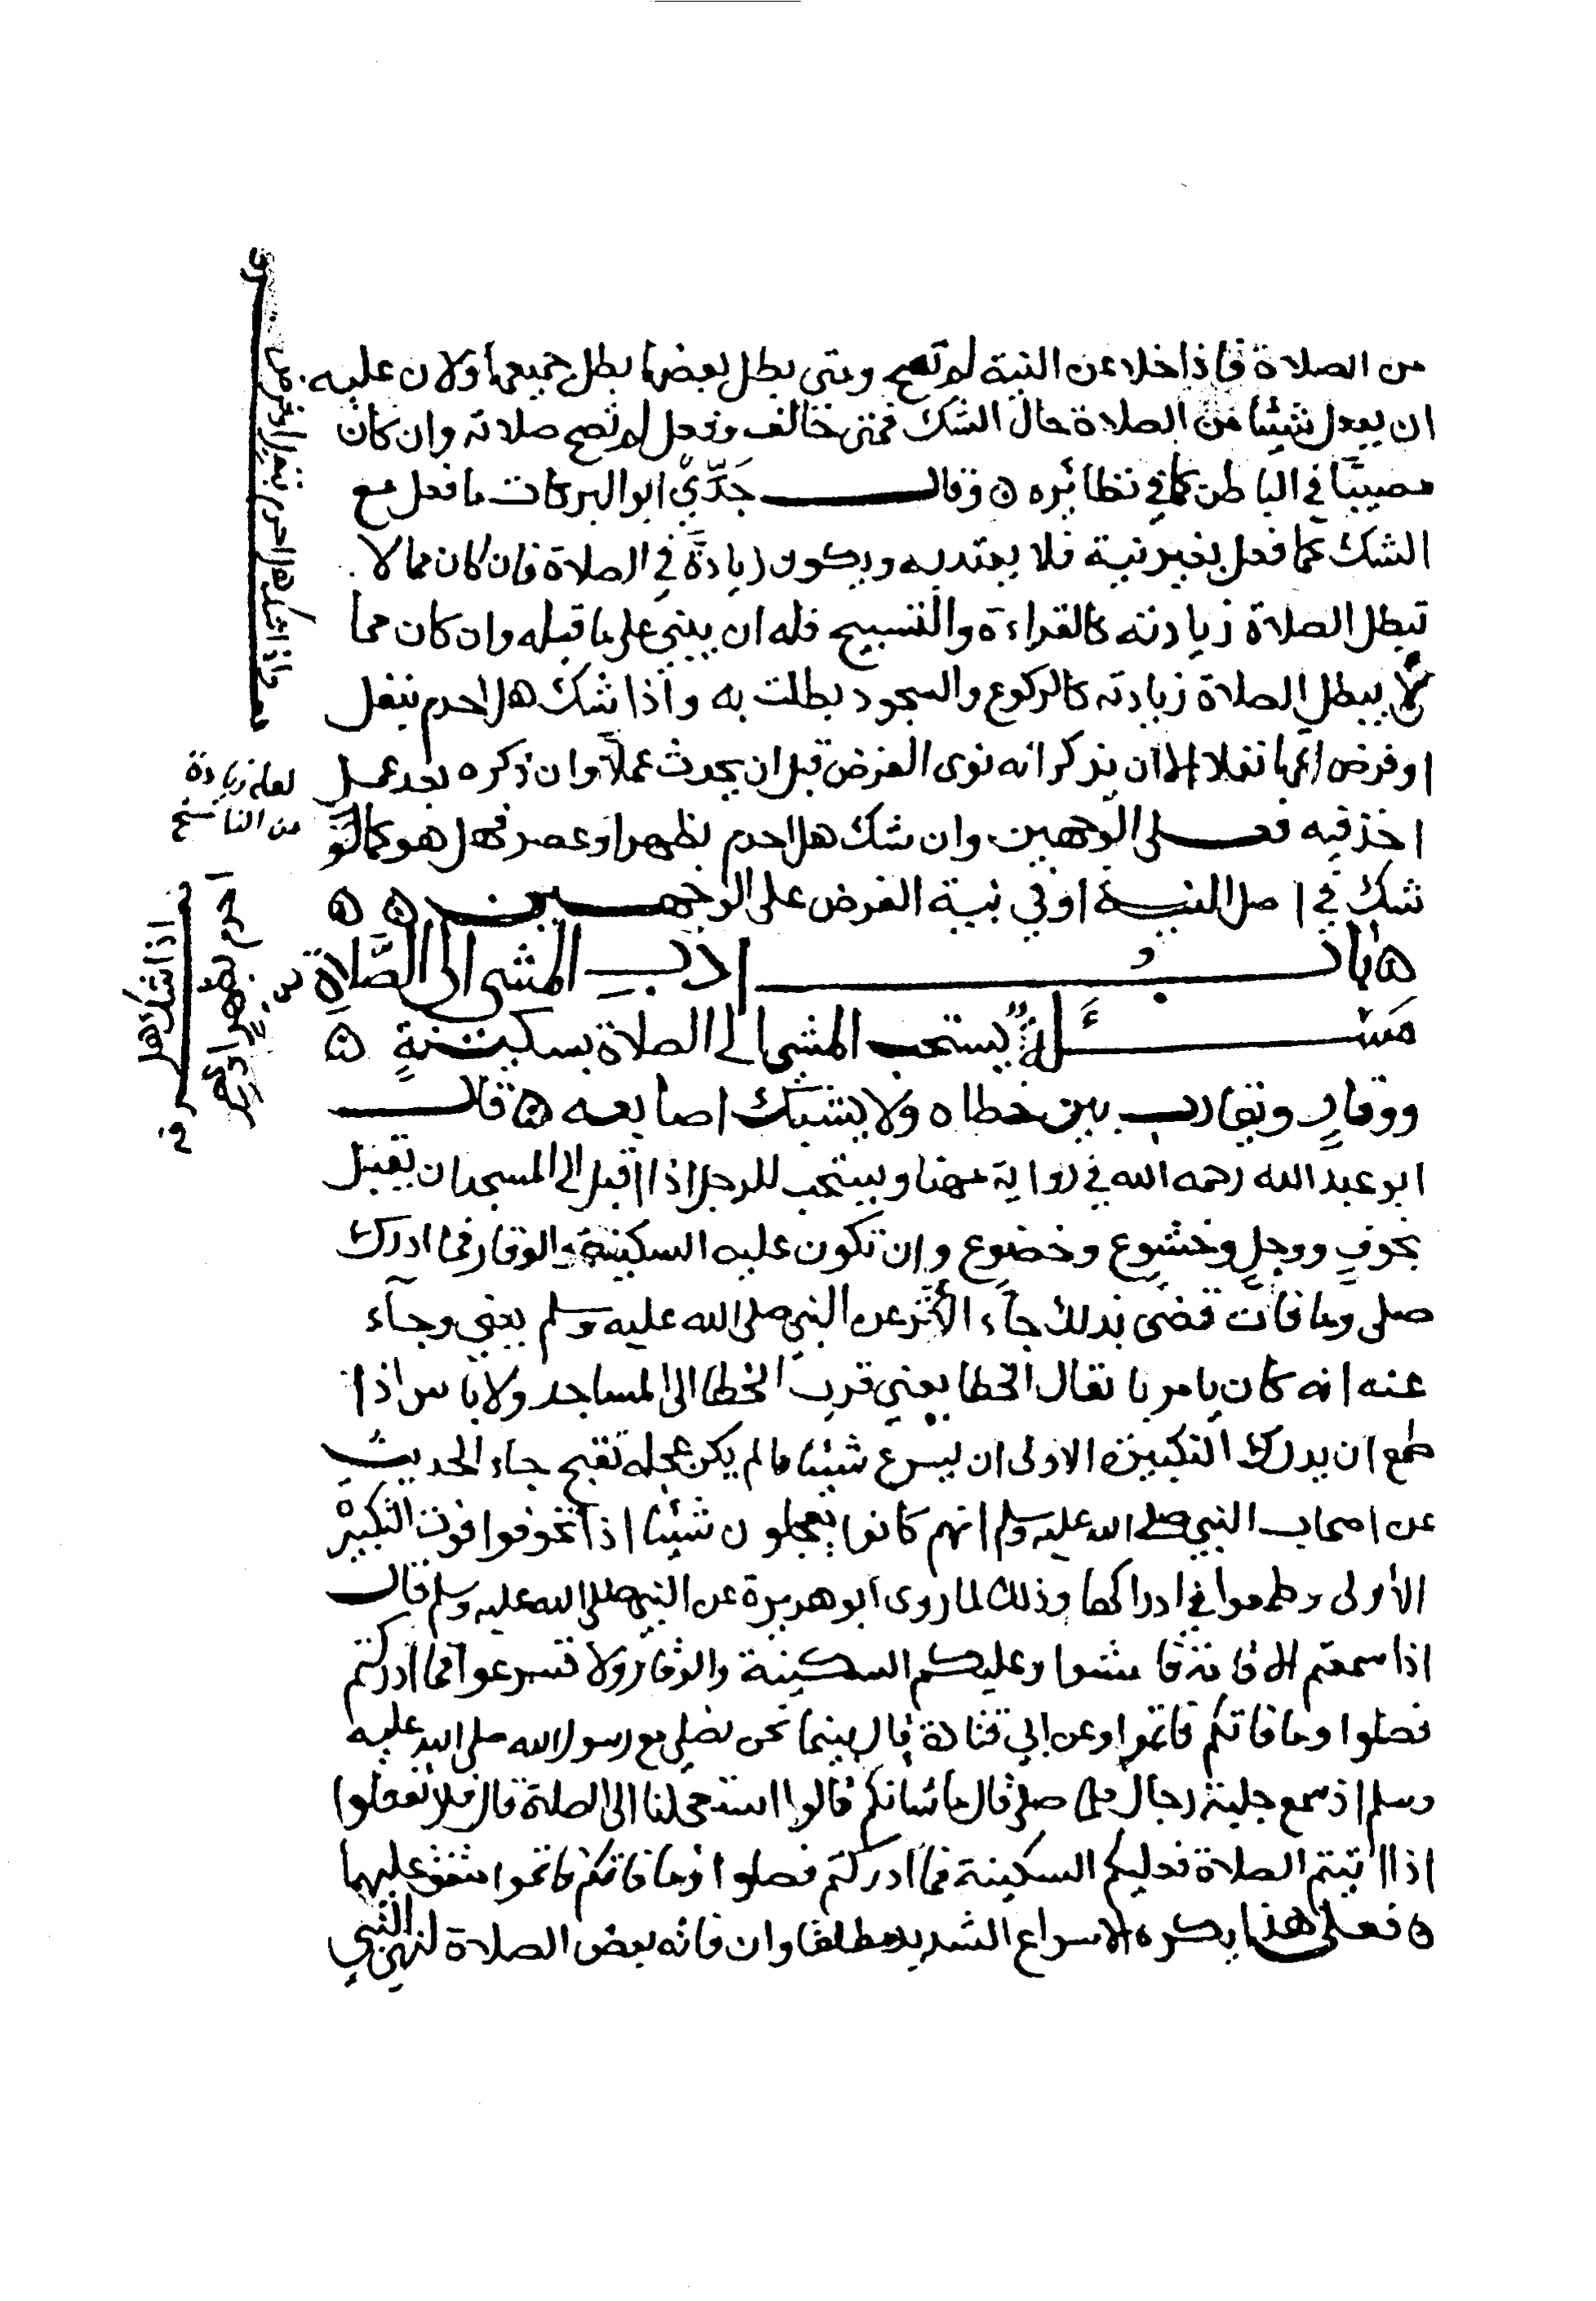 من الصلاة فاذا خلا عن النية لم تصح ومتى بطل بعضها بطل جميعها ولان عليه
ان يعدل شيئا من الصلاة حال الشك فمتى خالف وفعل لم تصح صلاته وان كان
مصيبا في الباطن كما في نظائره ه وقال جَدّي ابو البركات ما فعل مع
الشك عما فعل بغير نية فلا يعتد به ويكون زيادة في الصلاة فان كان مما لا
تبطل الصلاة زيادته كالقراءة والتسبيح فله ان يبني على ما قبله وان كان مما
لا يبطل الصلاة زيادته كالركوع والسجود بطلت به واذا شك هل احرم بنفل
او فرض اتمها نفلا الا ان يذكر انه نوى الفرض قبل ان يحدث عملا وان ذكره بعد عمل
اخذ فيه فعلى الوجهين وان شك هل احرم بظهر او عصر فهل هو كما لو
شك في اصل النية او في نية الفرض على الوجهين ه ه
ه باب ادب المشي الى الصَّلاةِ
مسئلة يستحب المشي الى الصلاة بسكينةٍ ه
ووقارٍ وتقارب بين خطاه ولا يشبك اصابعه ه قال
ابو عبد الله رحمه الله في رواية مهنا ويستحب للرجل اذا اقبل الى المسجد ان يقبل
بخوفٍ ووجلٍ وخشوعٍ وخضوعٍ وان تكون عليه السكينة والوقار فما ادرك
صلى وما فات قضى بذلك جاء الأثر عن النبي صلى الله عليه وسلم يعني وجاء
عنه انه كان يامر باتقال الخطا يعني قرب الخطا الى المساجد ولا باس اذا
طمع ان يدرك التكبيرة الاولى ان يسرع شيئا ما لم يكن عجلة تقبح جاء الحديث
عن اصحاب النبي صلى الله عليه وسلم انهم كانوا يعجلون شيئا اذا تخوفوا فوت التكبيرة
الأولى وطمعوا في ادراكها وذلك لما روى ابو هريرة عن النبي صلى الله عليه وسلم قال
اذا سمعتم الاقامة فامشوا وعليكم السكينة والوقار ولا تسرعوا فما ادركتم
فصلوا وما فاتكم فاتموا وعن ابي قتادة قال بينما نحن نصلي مع رسول الله صلى الله عليه
وسلم اذ سمع جلبة رجال فلما صلى قال ما شانكم قالوا استعجلنا الى الصلاة قال فلا تفعلوا
اذا اتيتم الصلاة فعليكم السكينة فما ادركتم فصلوا وما فاتكم فاتموا متفق عليهما
ه فعلى هذا يكره الاسراع الشديد مطلقا وان فاته بعض الصلاة لنهي النبي
واذا شك هل احرم بنفل او فرض
لعله زيادة
من الناسخ
اذا شك هل
احرم بظهر او